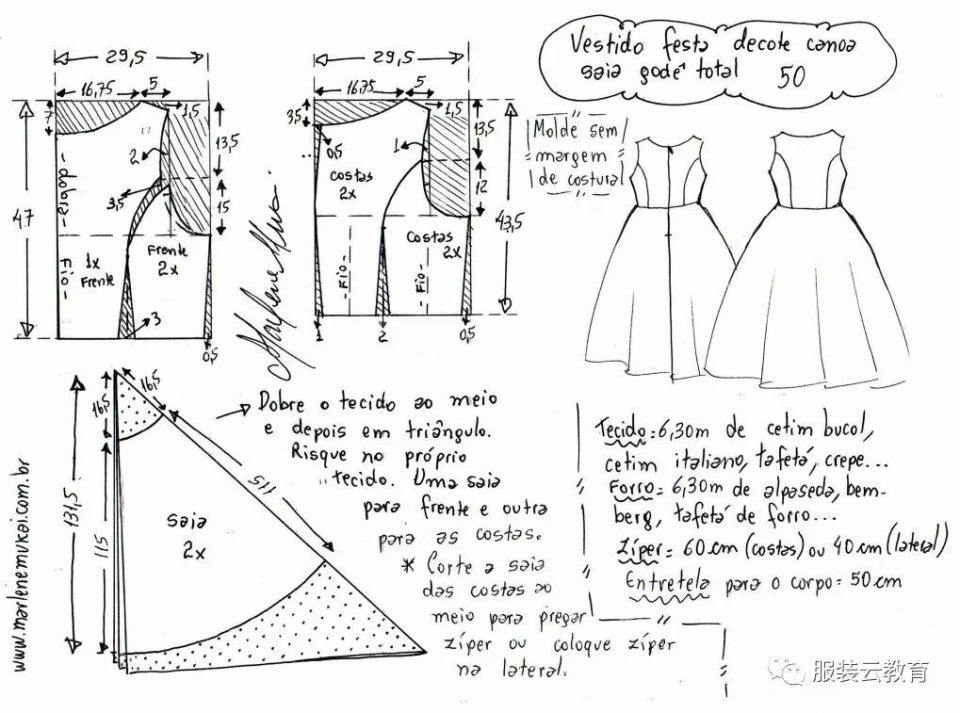 Vestido festa decote canoa
saia godê total 50
Molde sem
margem
de costura
29,5
16,75
5
7
1,5
13,5
2
3,5
15
47
- Dobra -
- Fio -
1x
Frente
Frente
2x
3
0,5
29,5
16,75
5
3,5
1,5
13,5
0,5
1
12
costas
2x
43,5
Costas
2x
- Fio -
- Fio -
1
2
0,5
Marlene Mukai
16,5
16,5
131,5
115
115
saia
2x
Dobre o tecido ao meio
e depois em triângulo.
Risque no próprio
tecido. Uma saia
para frente e outra
para as costas.
* Corte a saia
das costas ao
meio para pregar
zíper ou coloque zíper
na lateral.
Tecido = 6,30m de cetim bucol,
cetim italiano, tafetá, crepe...
Forro = 6,30m de alpaseda, bem-
berg, tafetá de forro...
Zíper = 60 cm (costas) ou 40 cm (lateral)
Entretela para o corpo = 50 cm
www.marlenemukai.com.br
服装云教育